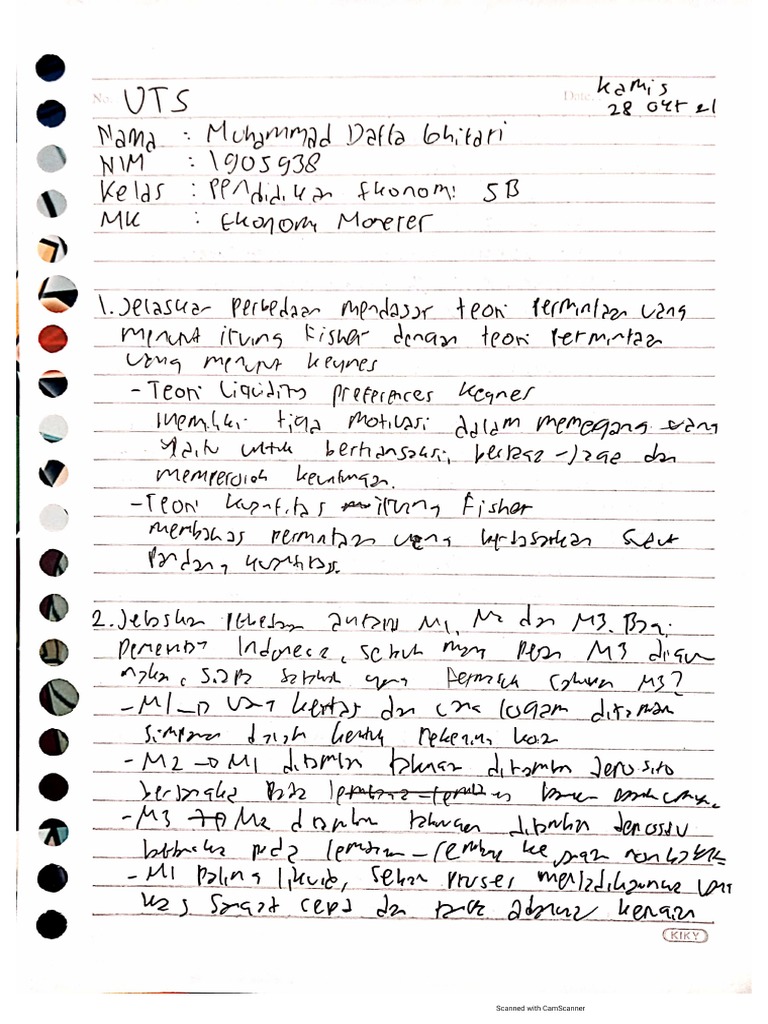 Kamis
No. UTS Date. 28 Okt 21
Nama : Muhammad Daffa Ghifari
NIM : 1905938
Kelas : Pendidikan Ekonomi 5B
MK : Ekonomi Moneter
1. Jelaskan perbedaan mendasar teori permintaan uang
menurut irving Fisher dengan teori permintaan
uang menurut keynes
- Teori Liquidity preferences Keynes
memiliki tiga motivasi dalam memegang uang
yaitu untuk bertransaksi, berjaga-jaga dan
memperoleh keuntungan.
- Teori kuantitas irving Fisher
membahas permintaan uang berdasarkan sudut
pandang kuantitas.
2. Jelaskan perbedaan antara M1, M2 dan M3. Bagi
pemerintah Indonesia, M3
M3?
- M1 → uang kertas dan uang logam ditambah
simpanan dalam bentuk rekening koran
- M2 → M1 ditambah tabungan ditambah deposito
berjangka pada bank
- M3 → M2 ditambah tabungan ditambah deposito
berjangka pada lembaga-lembaga keuangan non bank
- M1 paling likuid, sebab proses menjadikannya uang
kas sangat cepat dan tanpa adanya kerugian
KIKY
Scanned with CamScanner